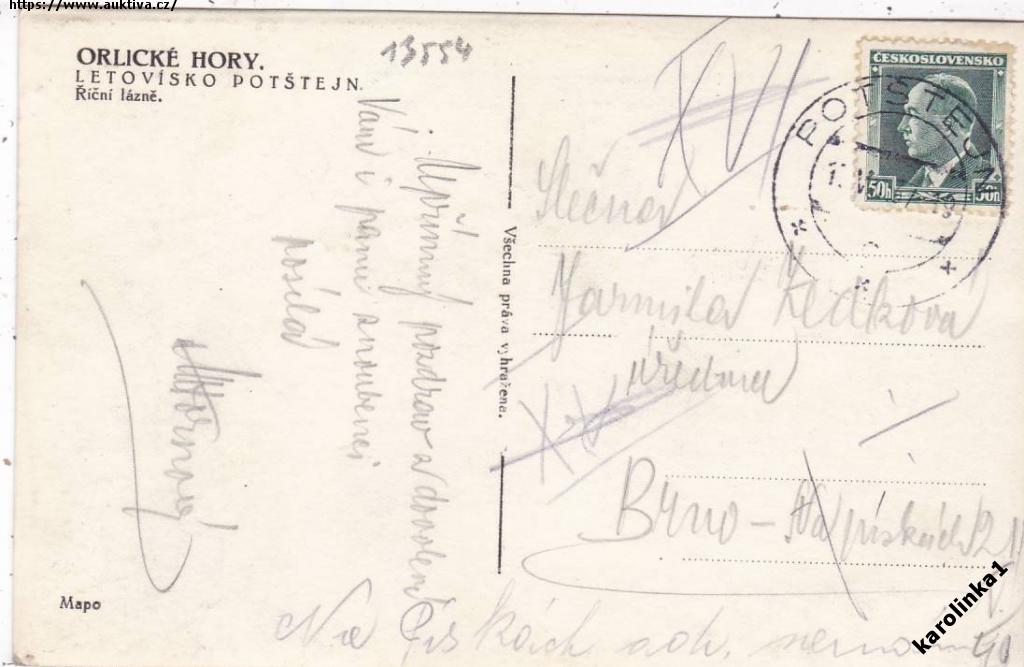 https://www.auktiva.cz/
ORLICKÉ HORY.
LETOVÍSKO POTŠTEJN.
Říční lázně.
13554
Upřímný pozdrav z dovolené
Vám i panu snoubenci
posílá
Mapo
Všechna práva vyhražena.
XVI
ČESKOSLOVENSKO
50h 50h
POTŠTEJN
Slečna
Jarmila
úřednice
XV
Brno - Na pískách 21
Na Pískách adr.
karolinka1